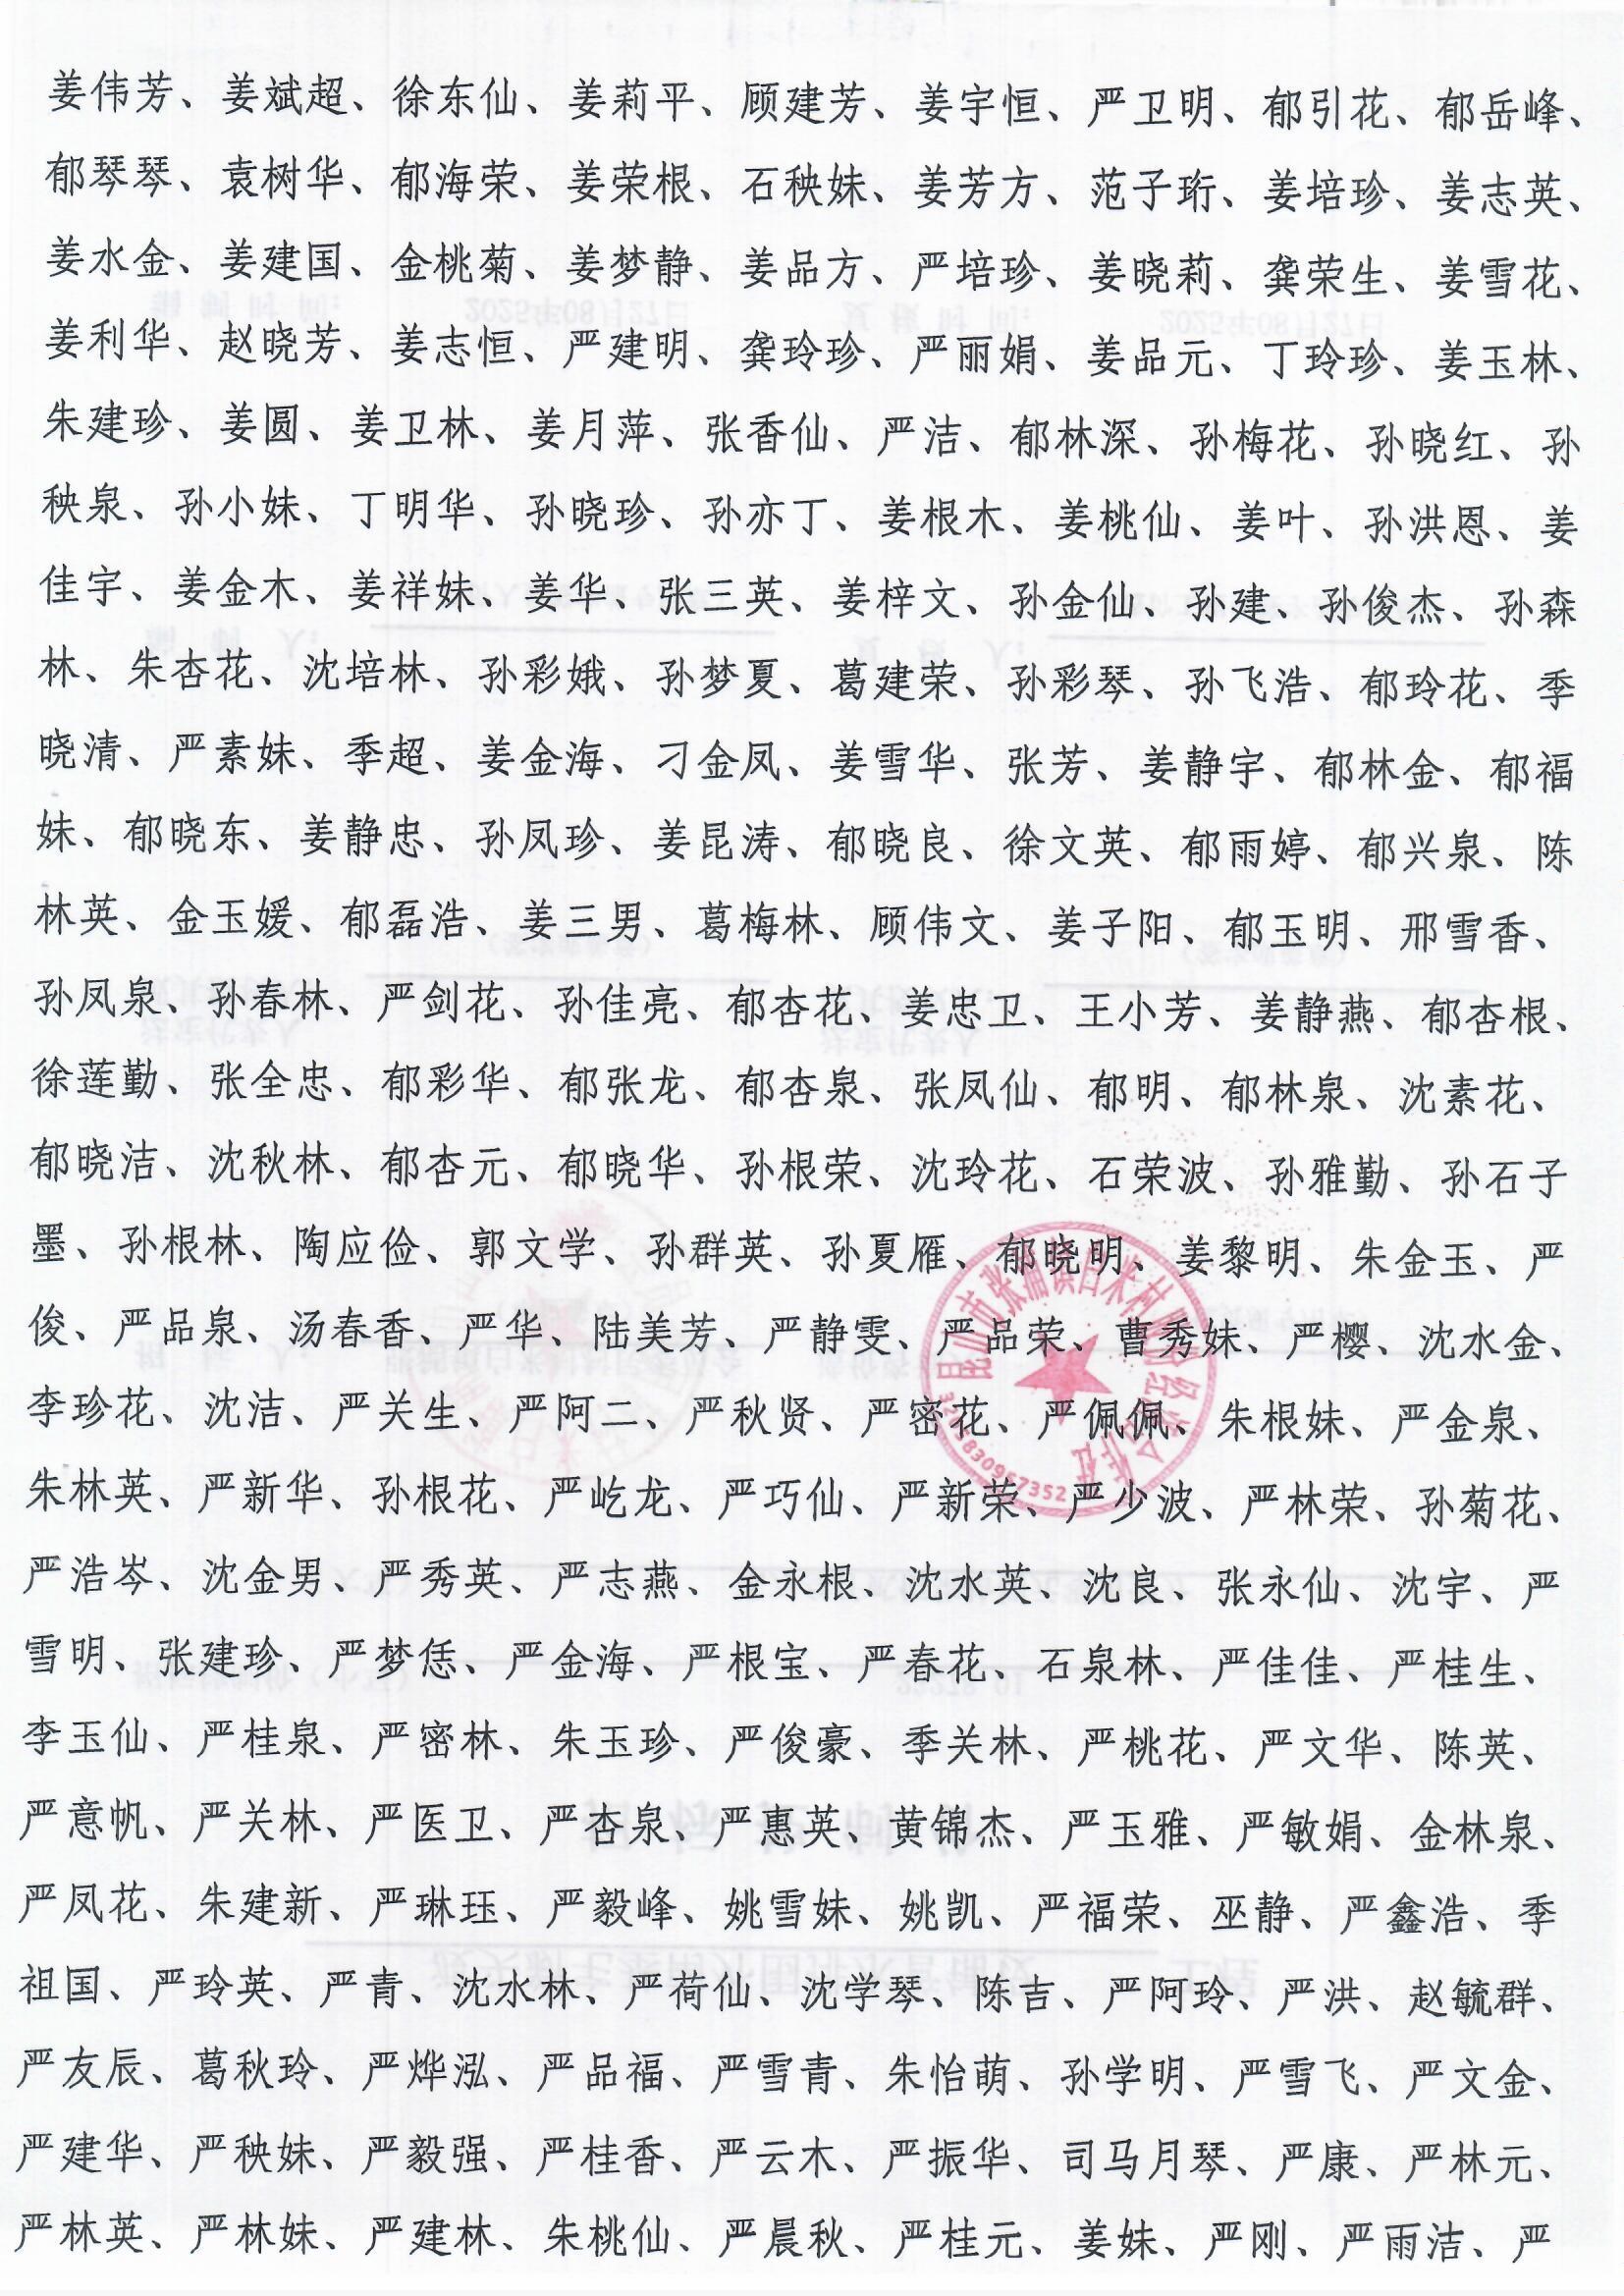 姜伟芳、姜斌超、徐东仙、姜莉平、顾建芳、姜宇恒、严卫明、郁引花、郁岳峰、
郁琴琴、袁树华、郁海荣、姜荣根、石秧妹、姜芳方、范子珩、姜培珍、姜志英、
姜水金、姜建国、金桃菊、姜梦静、姜品方、严培珍、姜晓莉、龚荣生、姜雪花、
姜利华、赵晓芳、姜志恒、严建明、龚玲珍、严丽娟、姜品元、丁玲珍、姜玉林、
朱建珍、姜圆、姜卫林、姜月萍、张香仙、严洁、郁林深、孙梅花、孙晓红、孙
秧泉、孙小妹、丁明华、孙晓珍、孙亦丁、姜根木、姜桃仙、姜叶、孙洪恩、姜
佳宇、姜金木、姜祥妹、姜华、张三英、姜梓文、孙金仙、孙建、孙俊杰、孙森
林、朱杏花、沈培林、孙彩娥、孙梦夏、葛建荣、孙彩琴、孙飞浩、郁玲花、季
晓清、严素妹、季超、姜金海、刁金凤、姜雪华、张芳、姜静宇、郁林金、郁福
妹、郁晓东、姜静忠、孙凤珍、姜昆涛、郁晓良、徐文英、郁雨婷、郁兴泉、陈
林英、金玉媛、郁磊浩、姜三男、葛梅林、顾伟文、姜子阳、郁玉明、邢雪香、
孙凤泉、孙春林、严剑花、孙佳亮、郁杏花、姜忠卫、王小芳、姜静燕、郁杏根、
徐莲勤、张全忠、郁彩华、郁张龙、郁杏泉、张凤仙、郁明、郁林泉、沈素花、
郁晓洁、沈秋林、郁杏元、郁晓华、孙根荣、沈玲花、石荣波、孙雅勤、孙石子
墨、孙根林、陶应俭、郭文学、孙群英、孙夏雁、郁晓明、姜黎明、朱金玉、严
俊、严品泉、汤春香、严华、陆美芳、严静雯、严品荣、曹秀妹、严樱、沈水金、
李珍花、沈洁、严关生、严阿二、严秋贤、严密花、严佩佩、朱根妹、严金泉、
朱林英、严新华、孙根花、严屹龙、严巧仙、严新荣、严少波、严林荣、孙菊花、
严浩岑、沈金男、严秀英、严志燕、金永根、沈水英、沈良、张永仙、沈宇、严
雪明、张建珍、严梦恬、严金海、严根宝、严春花、石泉林、严佳佳、严桂生、
李玉仙、严桂泉、严密林、朱玉珍、严俊豪、季关林、严桃花、严文华、陈英、
严意帆、严关林、严医卫、严杏泉、严惠英、黄锦杰、严玉雅、严敏娟、金林泉、
严凤花、朱建新、严琳珏、严毅峰、姚雪妹、姚凯、严福荣、巫静、严鑫浩、季
祖国、严玲英、严青、沈水林、严荷仙、沈学琴、陈吉、严阿玲、严洪、赵毓群、
严友辰、葛秋玲、严烨泓、严品福、严雪青、朱怡萌、孙学明、严雪飞、严文金、
严建华、严秧妹、严毅强、严桂香、严云木、严振华、司马月琴、严康、严林元、
严林英、严林妹、严建林、朱桃仙、严晨秋、严桂元、姜妹、严刚、严雨洁、严